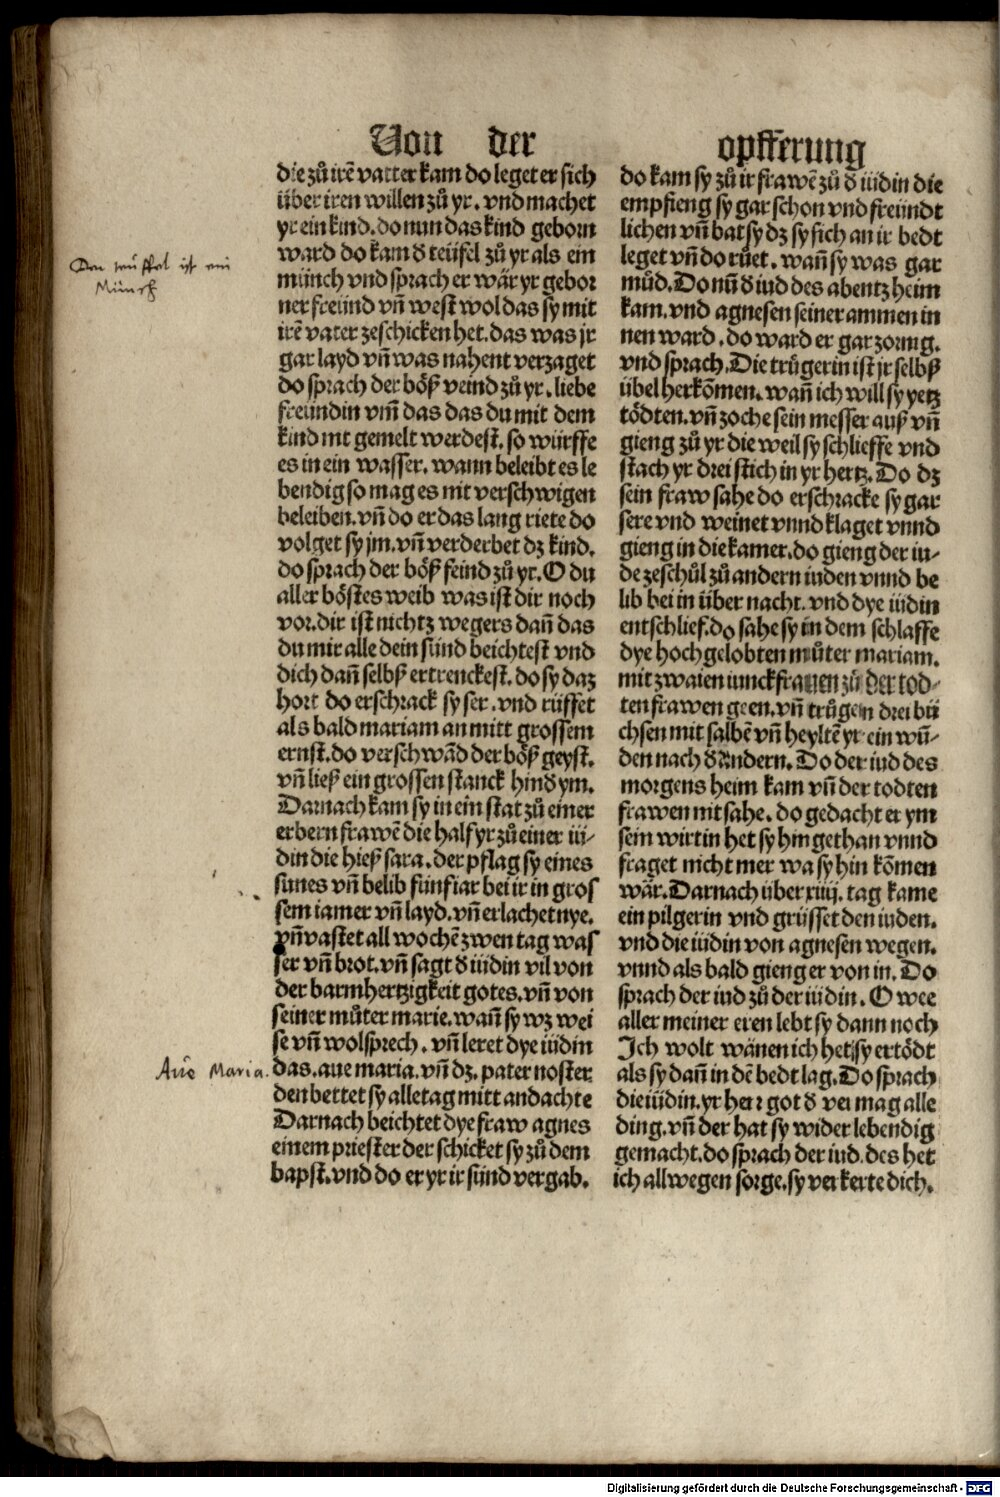 Von der opffẽrung
die zů irẽ vatter kam do leget er sich
über iren willen zů yr. vnd machet
yr ein kind. do nun das kind geborn
ward do kam d̕ teüfel zů yr als ein
münch vnd sprach er wär yr gebor
ner freünd vñ west wol das sy mit
irẽ vater zeschicken het. das was jr
gar layd vñ was nahent verzaget
do sprach der böß veind zů yr. liebe
freundin vm̃ das das du mit dem
kind nit gemelt werdest. so würffe
es in ein wasser. wann beleibt es le
bendig so mag es nit verschwigen
beleiben. vñ do er das lang riete do
volget sy jm. vñ verderbet dz kind.
do sprach der böß feind zů yr. O du
aller böstes weib was ist dir noch
vor. dir ist nichtz wegers dañ das
du mir alle dein sünd beichtest vnd
dich dañ selbß ertrenckest. do sy daz
hort do erschrack sy ser. vnd rüffet
als bald mariam an mitt grossem
ernst. do verschwãd der böß geyst.
vñ ließ ein grossen stanck hind ym.
Darnach kam sy in ein stat zů einer
erbern frawẽ die half yr zů einer iü-
din die hieß sara. der pflag sy eines
sunes vñ belib fünf iar bei ir in gros
sem iamer vñ layd. vñ erlachet nye.
vñ vastet all wochẽ zwen tag was
ser vñ brot. vñ sagt d̕ iüdin vil von
der barmhertzigkeit gotes. vñ von
seiner můter marie. wañ sy wz wei
se vñ wolsprech. vñ leret dye iüdin
das. aue maria. vñ dz. pater noster
den bettet sy alle tag mitt andachte
Darnach beichtet dye fraw agnes
einem priester der schicket sy zů dem
bapst. vnd do er yr ir sünd vergab.
do kam sy zů ir frawẽ zů d̕ iüdin die
empfieng sy gar schon vnd freündt
lichen vñ bat sy dz sy sich an ir bedt
leget vñ do růet. wañ sy was gar
můd. Do nũ d̕ iud des abentz heim
kam. vnd agnesen seiner ammen in
nen ward. do ward er gar zornig.
vnd sprach. Die trügerin ist jr selbß
übel herkõmen. wañ ich will sy yetz
tödten. vñ zoche sein messer auß vñ
gieng zů yr die weil sy schlieffe vnd
stach yr drei stich in yr hertz. Do dz
sein fraw sahe do erschracke sy gar
sere vnd weinet vnnd klaget vnnd
gieng in die kamer. do gieng der iu-
de ze schůl zů andern iuden vnnd be
lib bei in über nacht. vnd dye iüdin
entschlief. do sahe sy in dem schlaffe
dye hochgelobten můter mariam.
mit zwaien iunckfrauen zů der tod-
ten frawen geen. vñ trůgen drei bü
chsen mit salbẽ vñ heyltẽ yr ein wũ-
den nach d̕ andern. Do der iud des
morgens heim kam vñ der todten
frawen nit sahe. do gedacht er ym
sein wirtin het sy hin gethan vnnd
fraget nicht mer wa sy hin kõmen
wär. Darnach über xiiij. tag kame
ein pilgerin vnd grüsset den iuden.
vnd die iüdin von agnesen wegen.
vnnd als bald gieng er von in. Do
sprach der iud zů der iüdin. O wee
aller meiner eren lebt sy dann noch
Ich wolt wänen ich het sy ertödt
als sy dañ in dẽ bedt lag. Do sprach
die iüdin. yr herr got d̕ ver mag alle
ding. vñ der hat sy wider lebendig
gemacht. do sprach der iud. des het
ich allwegen sorge. sy verkerte dich.
Der teuffel ist ein
Münch
Aue Maria.
Digitalisierung gefördert durch die Deutsche Forschungsgemeinschaft - DFG